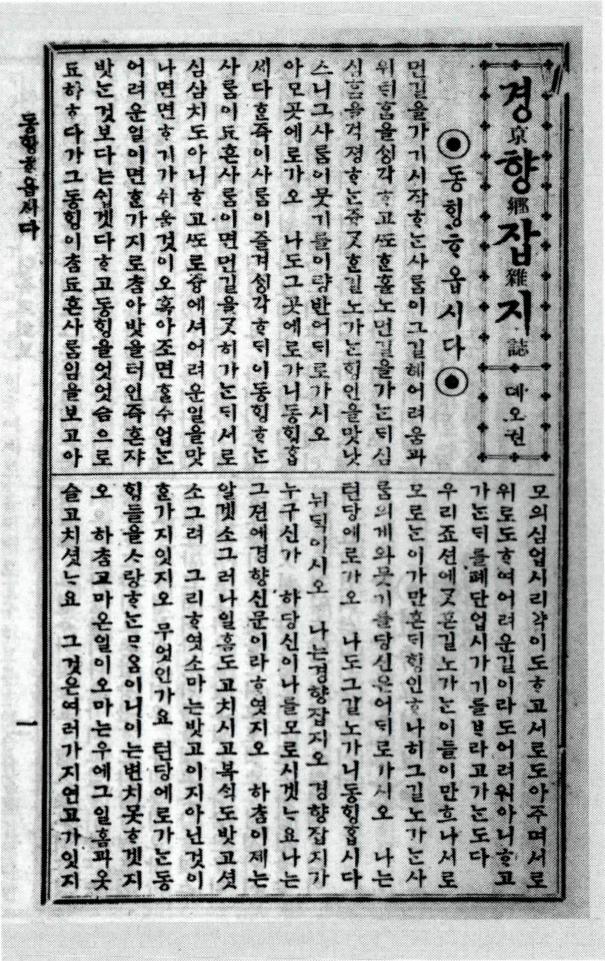 경京향鄕잡雜지誌 뎨오권
◉동ᄒᆡᆼᄒᆞ옵시다◉
먼길을가기시작ᄒᆞ는사ᄅᆞᆷ이그길헤어려움과
위ᄐᆡᄒᆞᆷ을ᄉᆡᆼ각ᄒᆞ고ᄯᅩᄒᆞᆫ홀노먼길을가는ᄃᆡ심
심ᄒᆞᆷ을걱졍ᄒᆞ는즁ᄀᆞᆺᄒᆞᆫ길노가는ᄒᆡᆼ인을맛낫
스니그사ᄅᆞᆷ이뭇기를이량반어ᄃᆡ로가시오
아모곳에로가오 나도그곳에로가니동ᄒᆡᆼᄒᆞᆸ
세다ᄒᆞᆫ즉이사ᄅᆞᆷ이즐겨ᄉᆡᆼ각ᄒᆞᄃᆡ이동ᄒᆡᆼᄒᆞ는
사ᄅᆞᆷ이됴흔사ᄅᆞᆷ이면먼길을ᄀᆞᆺ히가는ᄃᆡ서로
심심치도아니ᄒᆞ고ᄯᅩ로즁에셔어려운일을맛
나면면ᄒᆞ기가쉬울것이오혹아조면ᄒᆞᆯ수업는
어려운일이면ᄒᆞᆫ가지로ᄎᆞᆷ아밧을터인즉혼쟈
밧는것보다는쉽겟다ᄒᆞ고동ᄒᆡᆼ을엇엇슴으로
됴하ᄒᆞ다가그동ᄒᆡᆼ이ᄎᆞᆷ됴흔사ᄅᆞᆷ임을보고아
모의심업시리각이도ᄒᆞ고서로도아주며서로
위로도ᄒᆞ여어려운길이라도어려워아니ᄒᆞ고
가는ᄃᆡ를폐단업시가기를ᄇᆞ라고가는도다
우리죠션에ᄀᆞᆺᄒᆞᆫ길노가는이들이만흐나서로
모로는이가만흔ᄃᆡᄒᆡᆼ인ᄒᆞ나히그길노가는사
ᄅᆞᆷ의게와뭇기를당신은어ᄃᆡ로가시오 나는
텬당에로가오 나도그길노가니동ᄒᆡᆼᄒᆞᆸ시다
뉘댁이시오 나는경향잡지오 경향잡지가
누구신가 하당신이나를모로시겟ᄂᆞ요나는
그젼에경향신문이라ᄒᆞ엿지오 하ᄎᆞᆷ이제는
알겟소그러나일홈도고치시고복식도밧고셧
소그려 그리ᄒᆞ엿소마는밧고이지아닌것이
ᄒᆞᆫ가지잇지오 무엇인가요 텬당에로가는동
ᄒᆡᆼ들을ᄉᆞ랑ᄒᆞ는ᄆᆞᄋᆞᆷ이니이는변치못ᄒᆞ겟지
오 하ᄎᆞᆷ고마온일이오마는우에그일홈과옷
슬고치셧ᄂᆞ요 그것은여러가지연고가잇지
동ᄒᆡᆼᄒᆞ옵시다
一